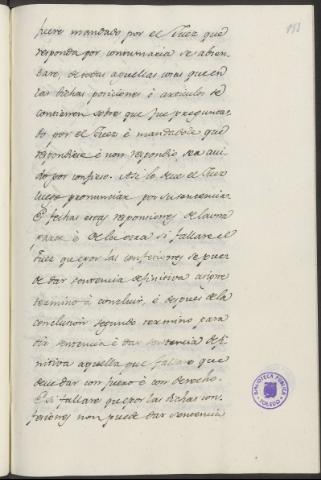 fuere mandado por el Juez que
responda por contumacia se absen-
tare, de todas aquellas cosas que en
las dichas posiciones è articulos se
contienen sobre que fue pregunta-
do por el Juez è mandadole que
respondiese è non respondio, sea avi-
do por confieso. Asi lo deve el Juez
luego pronunciar por su sentencia.
E fechas estas responsiones de la una
parte è de la otra si fallare el
Juez que por las confesiones se puede
dar sentencia definitiva asigne
termino à concluir, è despues de la
conclusion segundo termino para
dar sentencia è dar sentencia defi-
nitiva aquella que fallare que
deve dar con fuero è con derecho.
E si fallare que por las dichas con-
fesiones non puede dar sentencia
BIBLIOTECA PUBLICA
TOLEDO